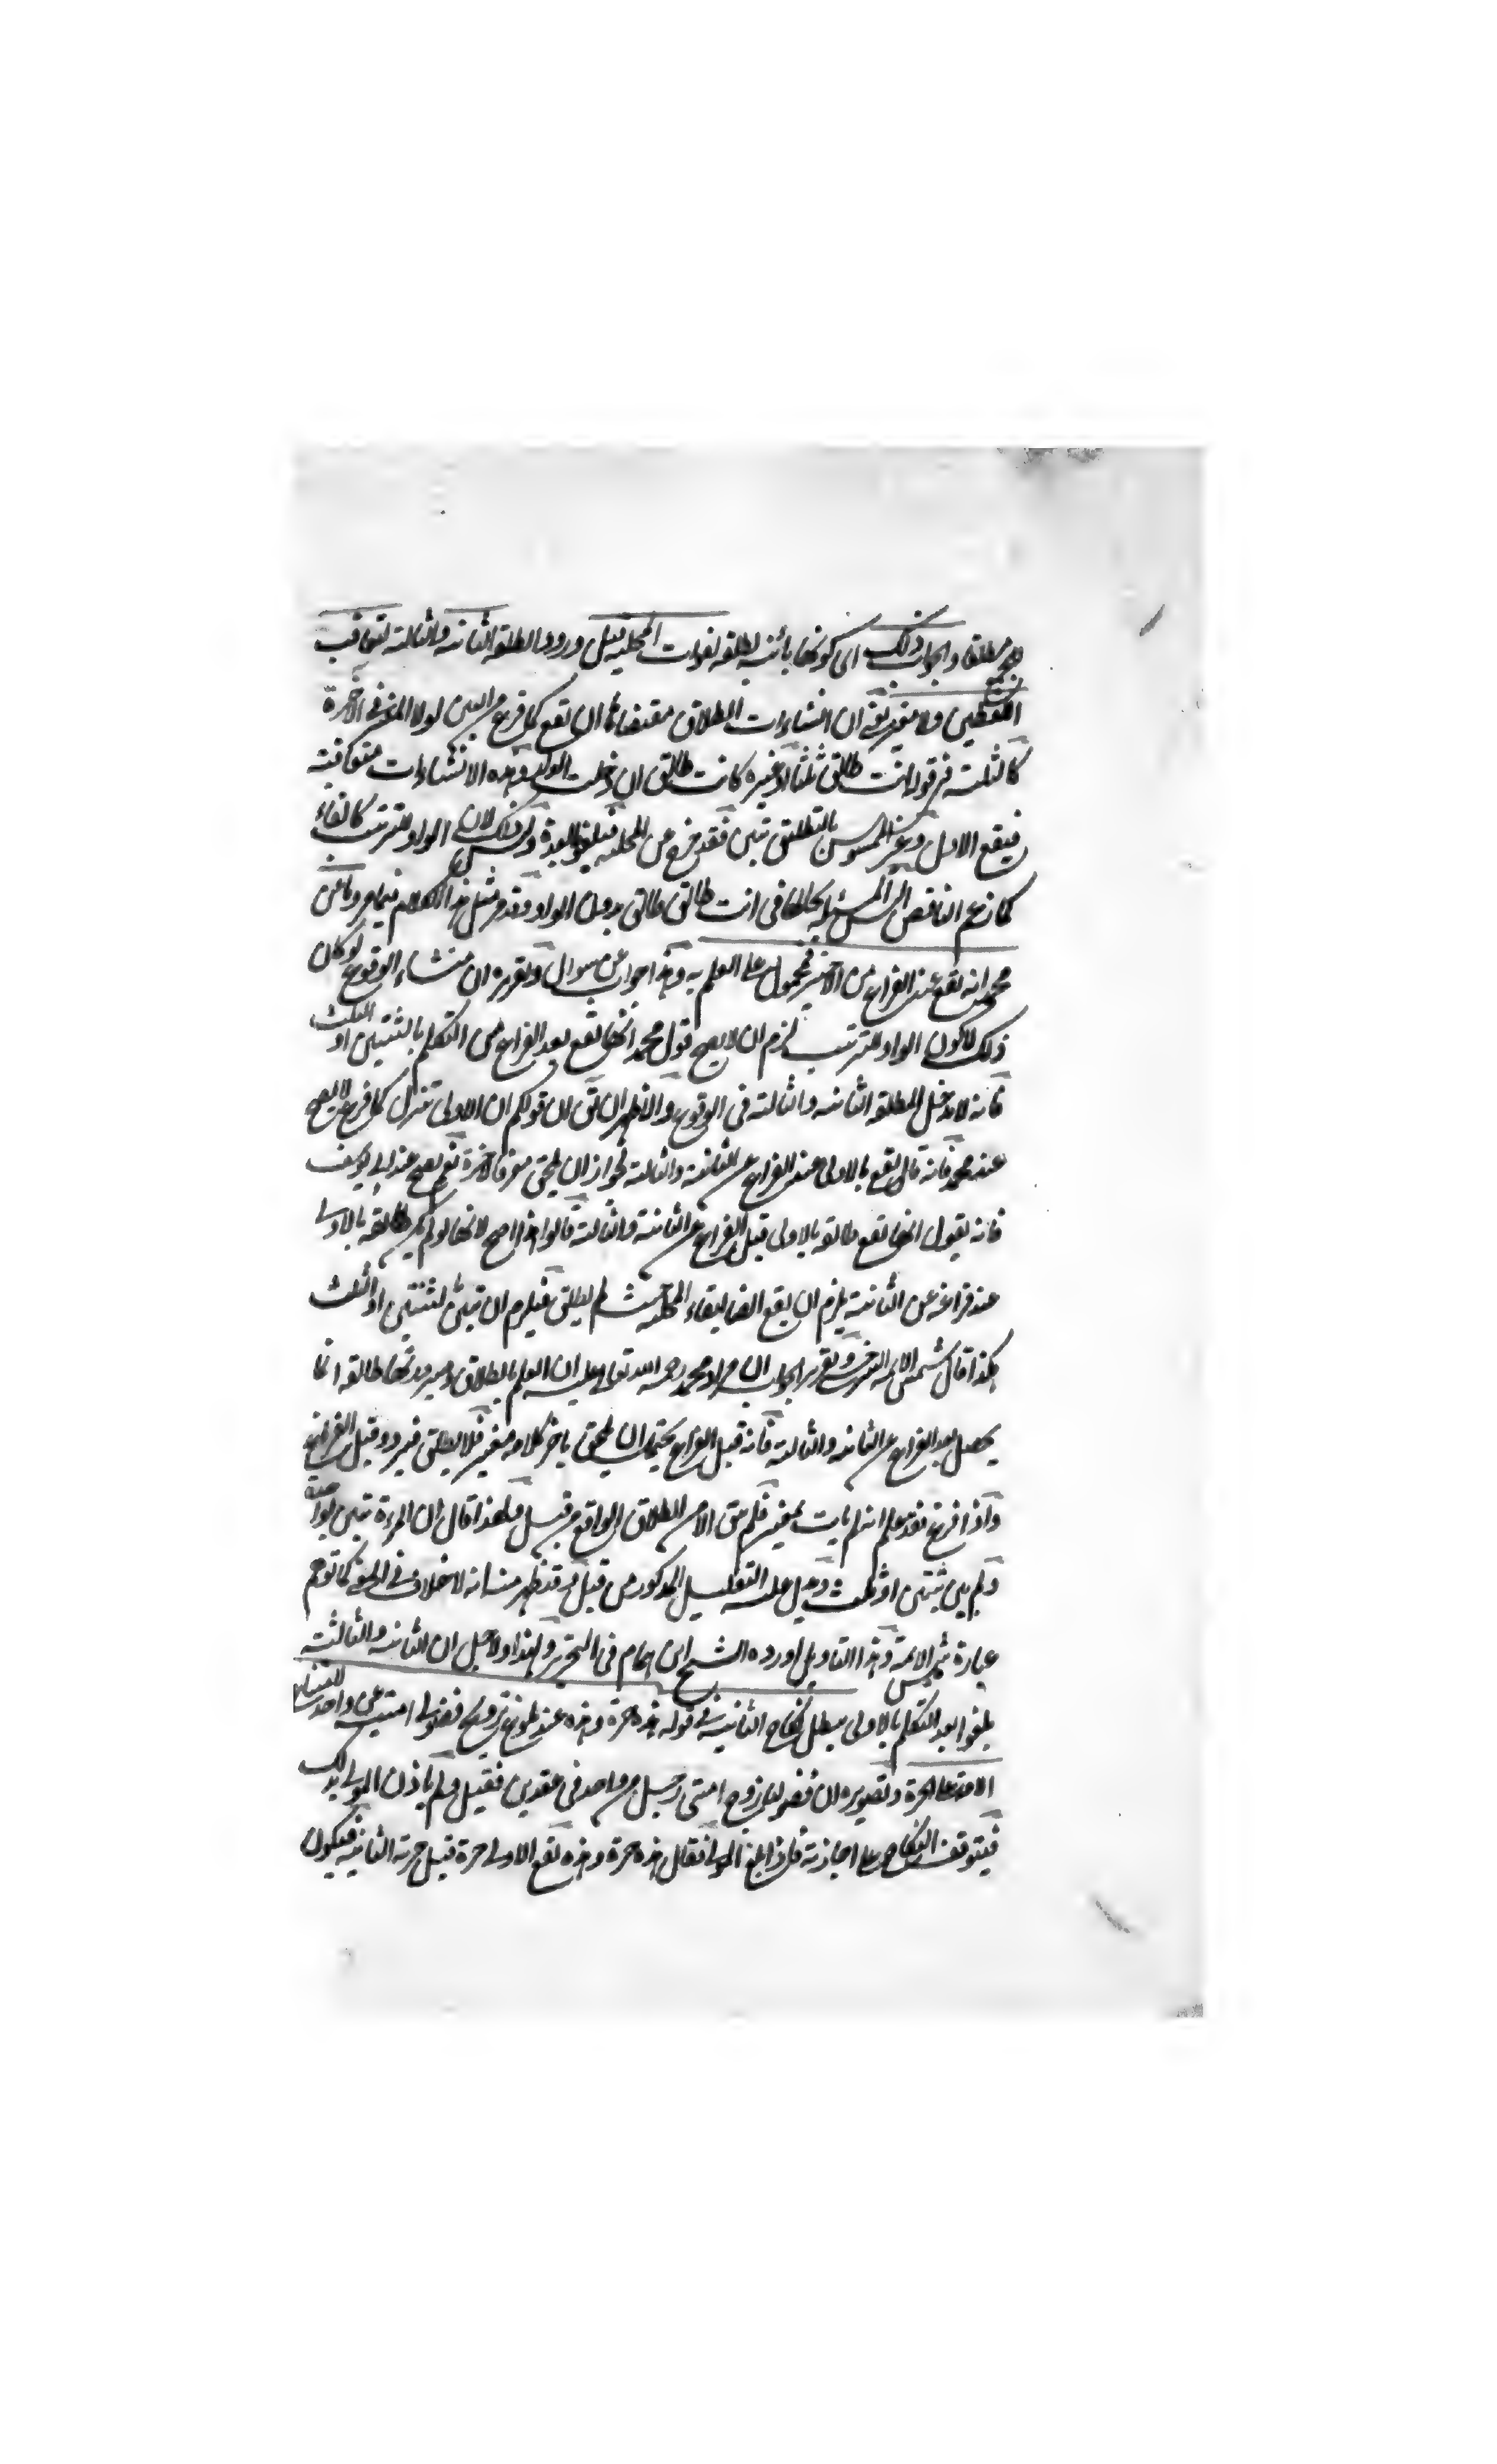 مطلقا والجواب ذلك اى كونها بائنة بطلقة لفوات المحلية قبل ورود الطلقة الثانية والثالثة لتعاقب
اللفظين ولا مغير يعنى ان انشاءات الطلاق مقتضاها ان تقع كما فرغ من البين لولا المغير فى الآخرة
كالثلث فى قوله انت طالق ثلثا او غيره كانت طالق ان دخلت الدار وهذه الانشاءات متعاقبة
فيقع الاول وغير الممسوس بالتطليق تبين فقد خرج عن المحلية فيلغو البعدة وليس ذلك لان الواو للترتيب كالفاء
كما زعم الناقض المسئلة بحالها فى انت طالق طالق بدون الواو وقد مر مثل هذا الكلام فيما مر وما عن
محمد انه يقع عند الفراغ من الاخير فمحمول على العلم به وهذا جواب عن سوال وتقريره ان منشاء الوقوع لو كان
ذلك لا كون الواو للترتيب لزم ان لا يصح قول محمد انها تقع بعد الفراغ من التكلم بالثنتين او الثلث
فانه لا مدخل للطلقة الثانية والثالثة فى الوقوع والاظهر ان يق ان قولكم ان الاولى تنزل كما فرغ لا يصح
عند محمد فانه قال يقع بالاولى عند الفراغ عن الثانية والثالثة لجواز ان يلحق مغير فى الاخرة نعم يصح عند ابى يوسف
فانه يقول انها تقع طالقه بالاولى قبل الفراغ عن الثانية والثالثة قالوا هذا اصح لانها لو لم يكن طالقة بالاولى
عند فراغه عن الثانية يلزم ان يقع ايضا لبقاء المحلية حيث لم يطلق فيلزم ان تبين لثنتين او الثلث
هكذا قال شمس الائمة السرخسى وتقرير الجواب ان مراد محمد رحمه الله تعالى عليه ان العلم بالطلاق وصيرورتها طالقة انما
يحصل بعد الفراغ عن الثانية والثالثة فانه قبل الفراغ يحتمل ان يلحق باخر كلامه مغير فلا يطلق فيردد قبل الفراغ
واذا فرغ فقد علم انه لم يات بمغير فلم يبق الا من الطلاق الواقع من قبل ولهذا قال ان المرءة تبين بواحدة
ولم يبن ثنتين او ثلث ويدل عليه التعليل المذكور من قبل فقد ظهر منه انه لا خلاف فى المعنى كما توهم
عبارة شمس الائمة وهذا التاويل اورده الشيخ ابن همام فى التحرير ولهذا ولاجل ان الثانية والثالثة
يلغوا بعد التكلم بالاولى يبطل نكاح الثانية فى قوله هذه حرة وهذه عند بلوغ تزويج فضولى امتيه من واحد
الامة على الحرة وتصويره ان فضولى زوج امتى رجل من واحد فى عقدين فقبل ولم ياذن المولى بذلك
فيتوقف النكاح على اجازته فاذا بلغ المولى فقال هذه حرة وهذه تقع الاولى حرة قبل حرية الثانية فيكون